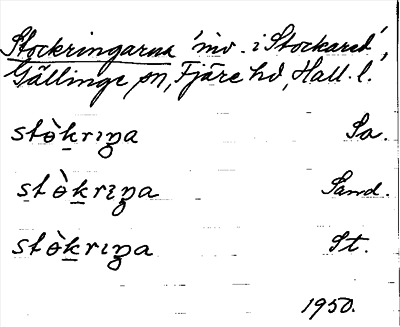 Stockringarna 'inv. i Stockared',
Gällinge sn, Fjäre hd, Hall. l.
stɵ̀kriŋa Sa.
stɵ̀kriŋa Sand.
stɵ̀kriŋa St.
1950.